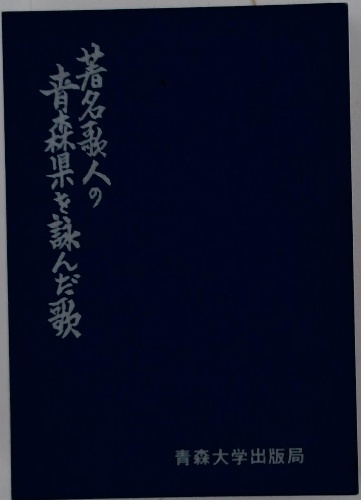 著名歌人の
青森県を詠んだ歌
青森大学出版局